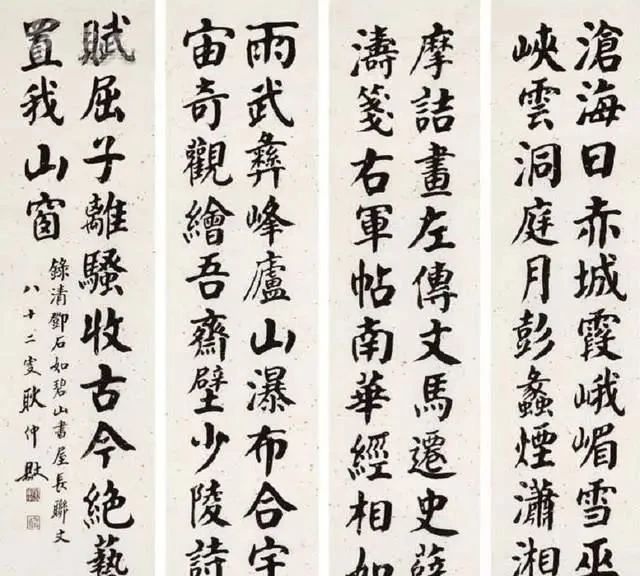 滄海日赤城霞峨嵋雪巫
峽雲洞庭月彭蠡煙瀟湘
摩詰畫左傳文馬遷史薛
濤箋右軍帖南華經相如
雨武彝峰廬山瀑布合宇
宙奇觀繪吾齋壁少陵詩
賦屈子離騷收古今絕藝
置我山窗
錄清鄧石如碧山書屋長聯文
八十二叟耿仲敭